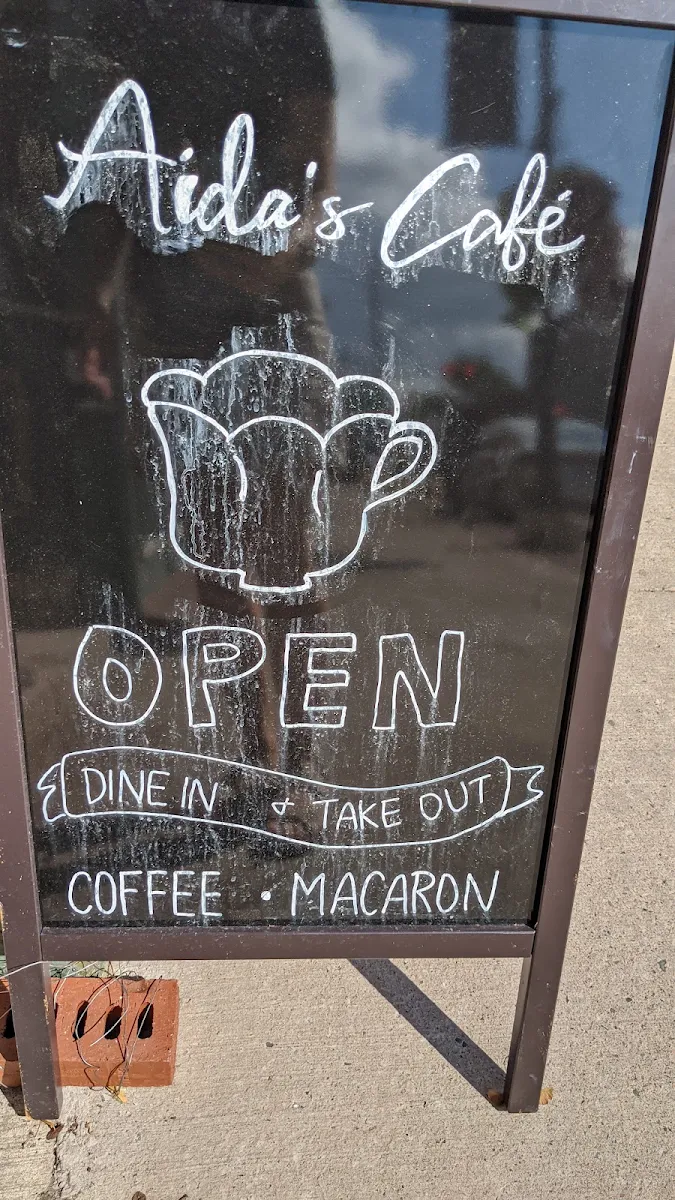 Aida's Café
OPEN
DINE IN & TAKE OUT
COFFEE · MACARON